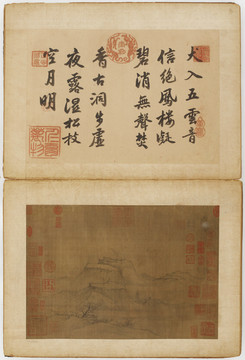 犬入五雲音
信絕鳳樓凝
碧消無聲焚
香古洞步虛
夜露濕松枝
空月明